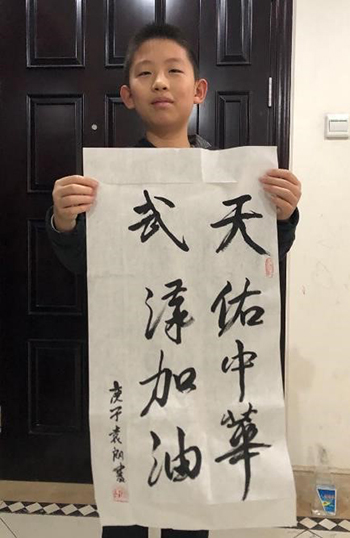 天佑中華
武漢加油
庚子袁朗書